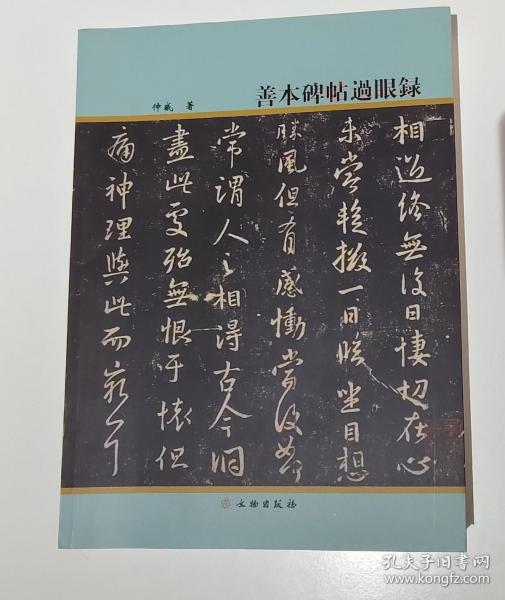 善本碑帖過眼録
仲威 著
相過終無復日悽切在心
未嘗暫掇一日臨坐目想
勝風但有感慟當復如何
常謂人之相得古今洞
盡此處殆無恨于懷但
痛神理與此而窮
文物出版社
孔夫子旧书网
www.kongfz.com